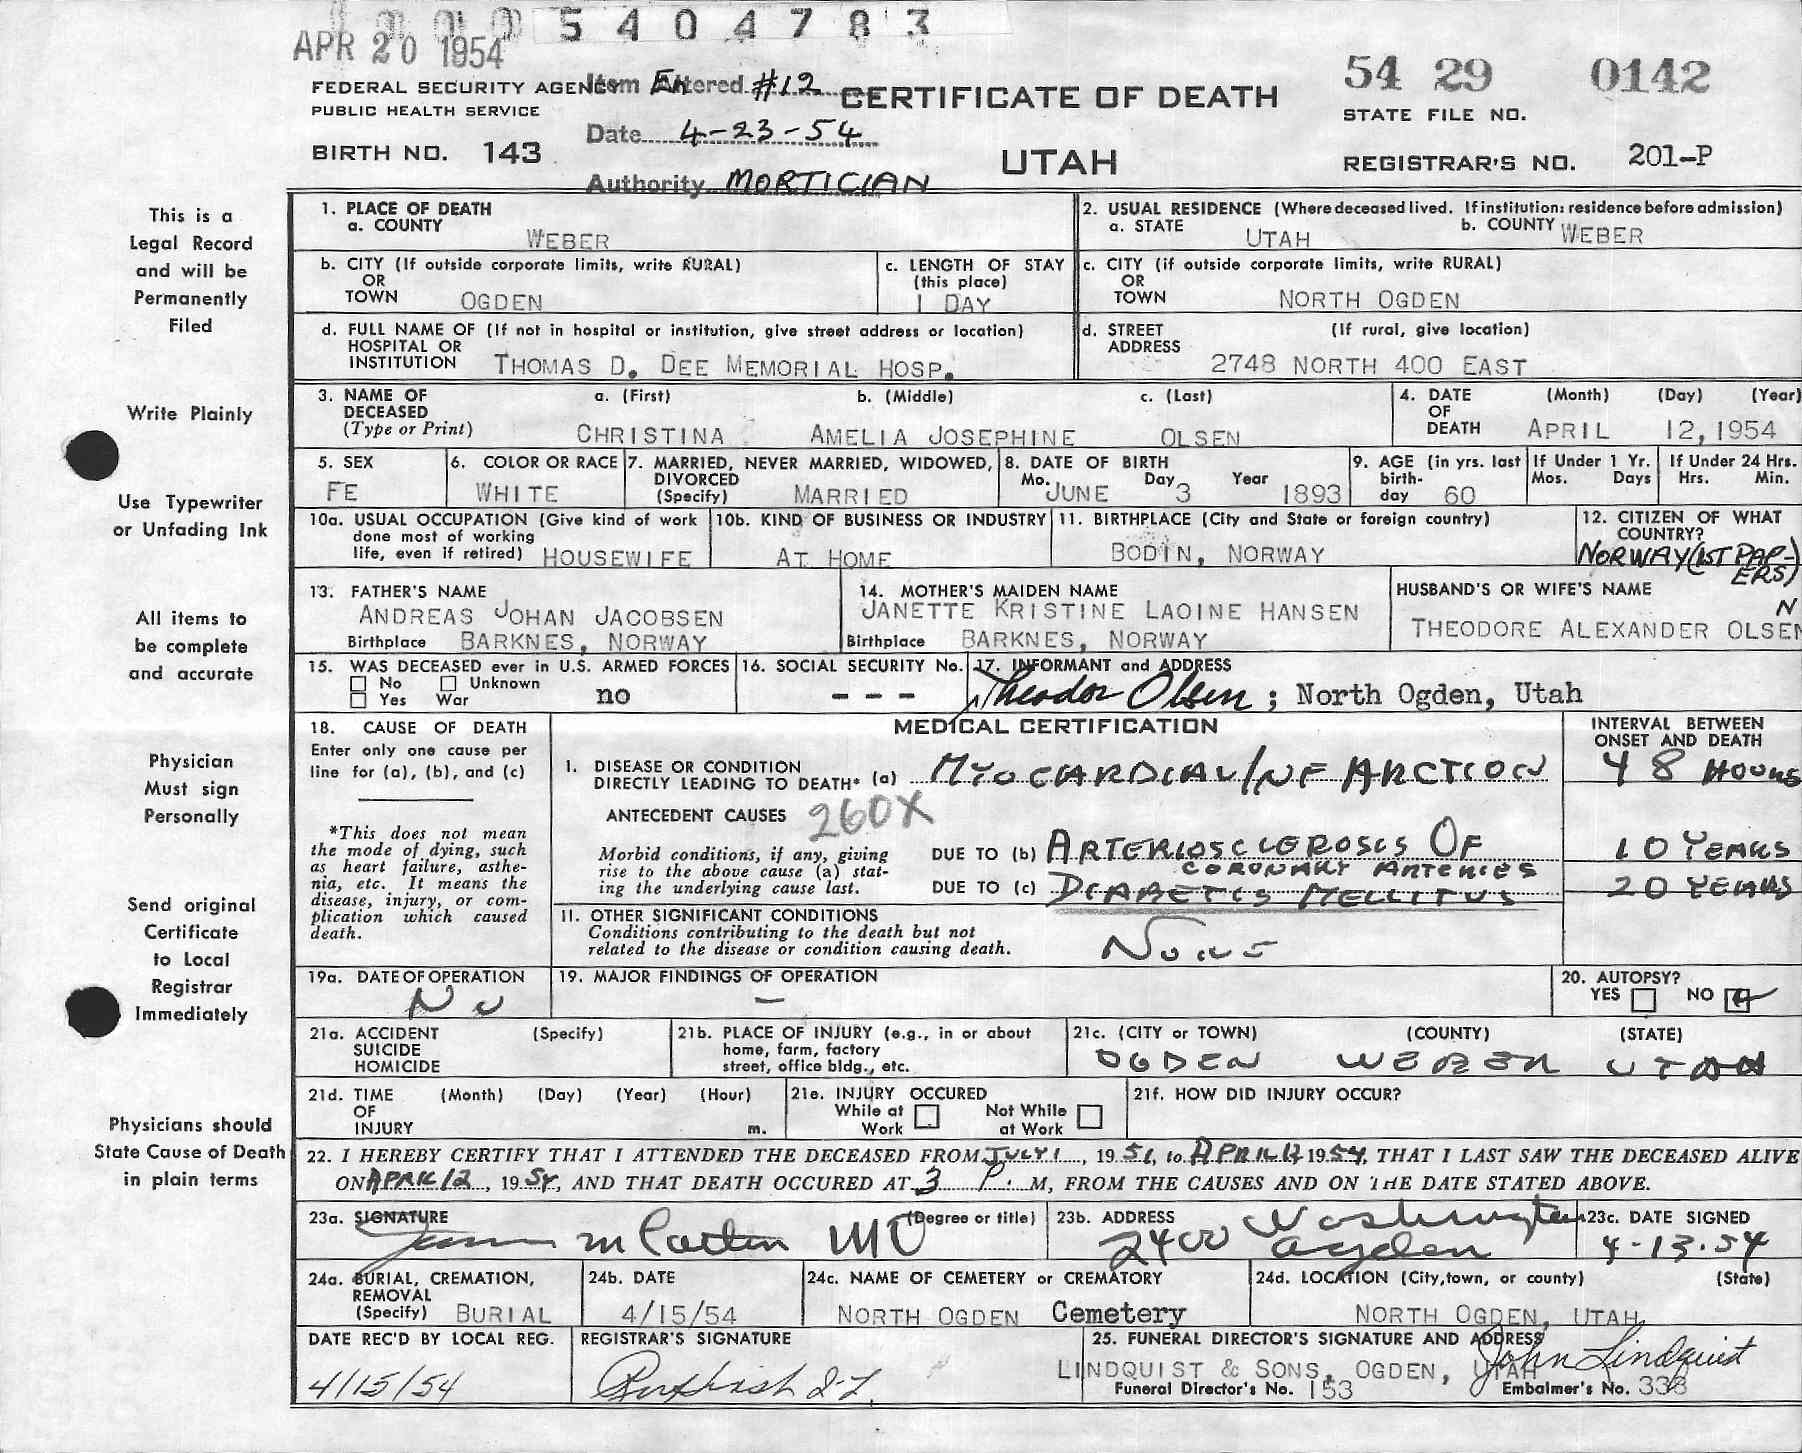 5404783
APR 20 1954
FEDERAL SECURITY AGENCY
PUBLIC HEALTH SERVICE
BIRTH NO. 143
Item Entered #12
Date 4-23-54
Authority MORTICIAN
CERTIFICATE OF DEATH
UTAH
54 29 0142
STATE FILE NO.
REGISTRAR'S NO. 201-P
This is a
Legal Record
and will be
Permanently
Filed
Write Plainly
Use Typewriter
or Unfading Ink
All items to
be complete
and accurate
Physician
Must sign
Personally
Send original
Certificate
to Local
Registrar
Immediately
Physicians should
State Cause of Death
in plain terms
1. PLACE OF DEATH
a. COUNTY
WEBER
2. USUAL RESIDENCE (Where deceased lived. If institution: residence before admission)
a. STATE UTAH b. COUNTY WEBER
b. CITY (If outside corporate limits, write RURAL)
OR
TOWN OGDEN
c. LENGTH OF STAY
(this place)
1 DAY
c. CITY (if outside corporate limits, write RURAL)
OR
TOWN NORTH OGDEN
d. FULL NAME OF (If not in hospital or institution, give street address or location)
HOSPITAL OR
INSTITUTION THOMAS D. DEE MEMORIAL HOSP.
d. STREET (If rural, give location)
ADDRESS
2748 NORTH 400 EAST
3. NAME OF a. (First) b. (Middle) c. (Last)
DECEASED
(Type or Print) CHRISTINA AMELIA JOSEPHINE OLSEN
4. DATE (Month) (Day) (Year)
OF
DEATH APRIL 12, 1954
5. SEX
FE
6. COLOR OR RACE
WHITE
7. MARRIED, NEVER MARRIED, WIDOWED,
DIVORCED
(Specify) MARRIED
8. DATE OF BIRTH
Mo. JUNE Day 3 Year 1893
9. AGE (in yrs. last
birth-
day 60
If Under 1 Yr.
Mos. Days
If Under 24 Hrs.
Hrs. Min.
10a. USUAL OCCUPATION (Give kind of work
done most of working
life, even if retired) HOUSEWIFE
10b. KIND OF BUSINESS OR INDUSTRY
AT HOME
11. BIRTHPLACE (City and State or foreign country)
BODIN, NORWAY
12. CITIZEN OF WHAT
COUNTRY?
NORWAY (1ST PAP-
ERS)
13. FATHER'S NAME
ANDREAS JOHAN JACOBSEN
Birthplace BARKNES, NORWAY
14. MOTHER'S MAIDEN NAME
JANETTE KRISTINE LAOINE HANSEN
Birthplace BARKNES, NORWAY
HUSBAND'S OR WIFE'S NAME
N
THEODORE ALEXANDER OLSEN
15. WAS DECEASED ever in U.S. ARMED FORCES
No Unknown
Yes War no
16. SOCIAL SECURITY No.
- - -
17. INFORMANT and ADDRESS
Theodor Olsen ; North Ogden, Utah
18. CAUSE OF DEATH
Enter only one cause per
line for (a), (b), and (c)
*This does not mean
the mode of dying, such
as heart failure, asthe-
nia, etc. It means the
disease, injury, or com-
plication which caused
death.
MEDICAL CERTIFICATION
INTERVAL BETWEEN
ONSET AND DEATH
I. DISEASE OR CONDITION
DIRECTLY LEADING TO DEATH* (a) MYOCARDIAL INFARCTION 48 HOURS
ANTECEDENT CAUSES 260X
Morbid conditions, if any, giving
rise to the above cause (a) stat-
ing the underlying cause last.
DUE TO (b) ARTERIOSCLEROSIS OF
CORONARY ARTERIES
10 YEARS
DUE TO (c) DIABETES MELLITUS 20 YEARS
II. OTHER SIGNIFICANT CONDITIONS
Conditions contributing to the death but not
related to the disease or condition causing death.
NONE
19a. DATE OF OPERATION
NO
19. MAJOR FINDINGS OF OPERATION
-
20. AUTOPSY?
YES NO
21a. ACCIDENT (Specify)
SUICIDE
HOMICIDE
21b. PLACE OF INJURY (e.g., in or about
home, farm, factory
street, office bldg., etc.
21c. (CITY or TOWN) (COUNTY) (STATE)
OGDEN WEBER UTAH
21d. TIME (Month) (Day) (Year) (Hour)
OF
INJURY m.
21e. INJURY OCCURED
While at Work
Not While at Work
21f. HOW DID INJURY OCCUR?
22. I HEREBY CERTIFY THAT I ATTENDED THE DECEASED FROM JULY 1, 1951, to APRIL 12 1954, THAT I LAST SAW THE DECEASED ALIVE
ON APRIL 12, 1954, AND THAT DEATH OCCURED AT 3 P. M, FROM THE CAUSES AND ON THE DATE STATED ABOVE.
23a. SIGNATURE (Degree or title)
MD
23b. ADDRESS
2400 Washington
Ogden
23c. DATE SIGNED
4-13-54
24a. BURIAL, CREMATION,
REMOVAL
(Specify) BURIAL
24b. DATE
4/15/54
24c. NAME OF CEMETERY or CREMATORY
NORTH OGDEN Cemetery
24d. LOCATION (City, town, or county) (State)
NORTH OGDEN, UTAH
DATE REC'D BY LOCAL REG.
4/15/54
REGISTRAR'S SIGNATURE
25. FUNERAL DIRECTOR'S SIGNATURE AND ADDRESS
John Lindquist
LINDQUIST & SONS, OGDEN, UTAH
Funeral Director's No. 153 Embalmer's No. 338